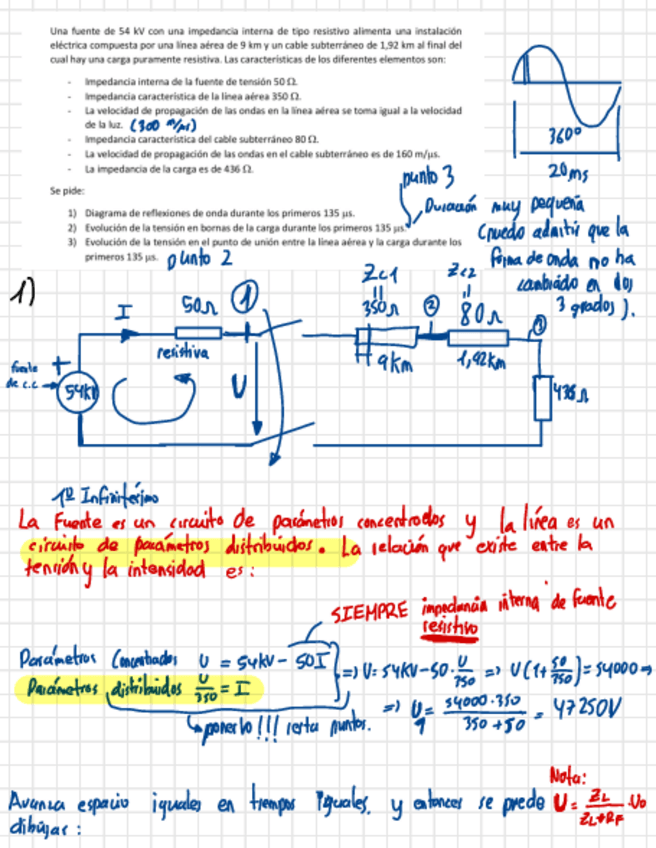 Una fuente de 54 kV con una impedancia interna de tipo resistivo alimenta una instalación
eléctrica compuesta por una línea aérea de 9 km y un cable subterráneo de 1,92 km al final del
cual hay una carga puramente resistiva. Las características de los diferentes elementos son:
- Impedancia interna de la fuente de tensión 50 Ω.
- Impedancia característica de la línea aérea 350 Ω.
- La velocidad de propagación de las ondas en la línea aérea se toma igual a la velocidad
de la luz. (300 m/μs)
- Impedancia característica del cable subterráneo 80 Ω.
- La velocidad de propagación de las ondas en el cable subterráneo es de 160 m/μs.
- La impedancia de la carga es de 436 Ω.
360º
20ms
Se pide:
punto 3
1) Diagrama de reflexiones de onda durante los primeros 135 μs.
2) Evolución de la tensión en bornas de la carga durante los primeros 135 μs.
3) Evolución de la tensión en el punto de unión entre la línea aérea y la carga durante los
primeros 135 μs. punto 2
Duración muy pequeña
(puedo admitir que la
forma de onda no ha
cambiado en dos
3 grados).
1)
I
50Ω
1
resistiva
fuente
de c.c
+
54kV
U
Zc1
=
350Ω
9km
2
Zc2
=
80Ω
1,92km
436Ω
1º Infinitésimo
La Fuente es un circuito de parámetros concentrados y la línea es un
circuito de parámetros distribuidos. La relación que existe entre la
tensión y la intensidad es:
SIEMPRE impedancia interna de fuente
resistivo
Parámetros Concentrados U = 54kV - 50I
Parámetros distribuidos U/350 = I
=> U = 54KV - 50 · U/350 => U(1 + 50/350) = 54000 =>
=> U = 54000·350 / 350+50 = 47250V
1
ponerlo!!! resta puntos.
Nota:
Avanza espacio iguales en tiempos iguales, y entonces se puede
dibujar:
U = ZL / ZL+RF · U0